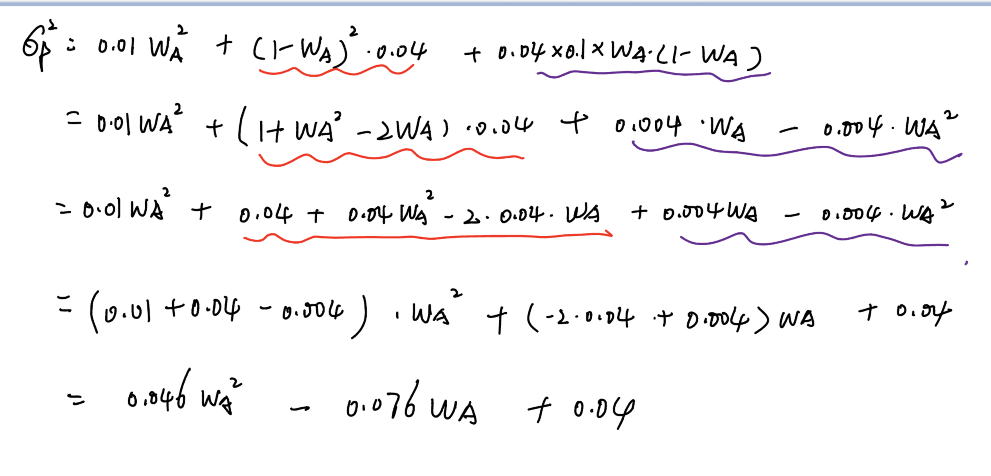 σp² = 0.01 WA² + (1-WA)² · 0.04 + 0.04×0.1×WA·(1-WA)
= 0.01 WA² + (1+WA²-2WA) · 0.04 + 0.004 · WA - 0.004 · WA²
= 0.01 WA² + 0.04 + 0.04 WA² - 2 · 0.04 · WA + 0.004 WA - 0.004 · WA²
= (0.01 + 0.04 - 0.004) · WA² + (-2 · 0.04 + 0.004) WA + 0.04
= 0.046 WA² - 0.076 WA + 0.04